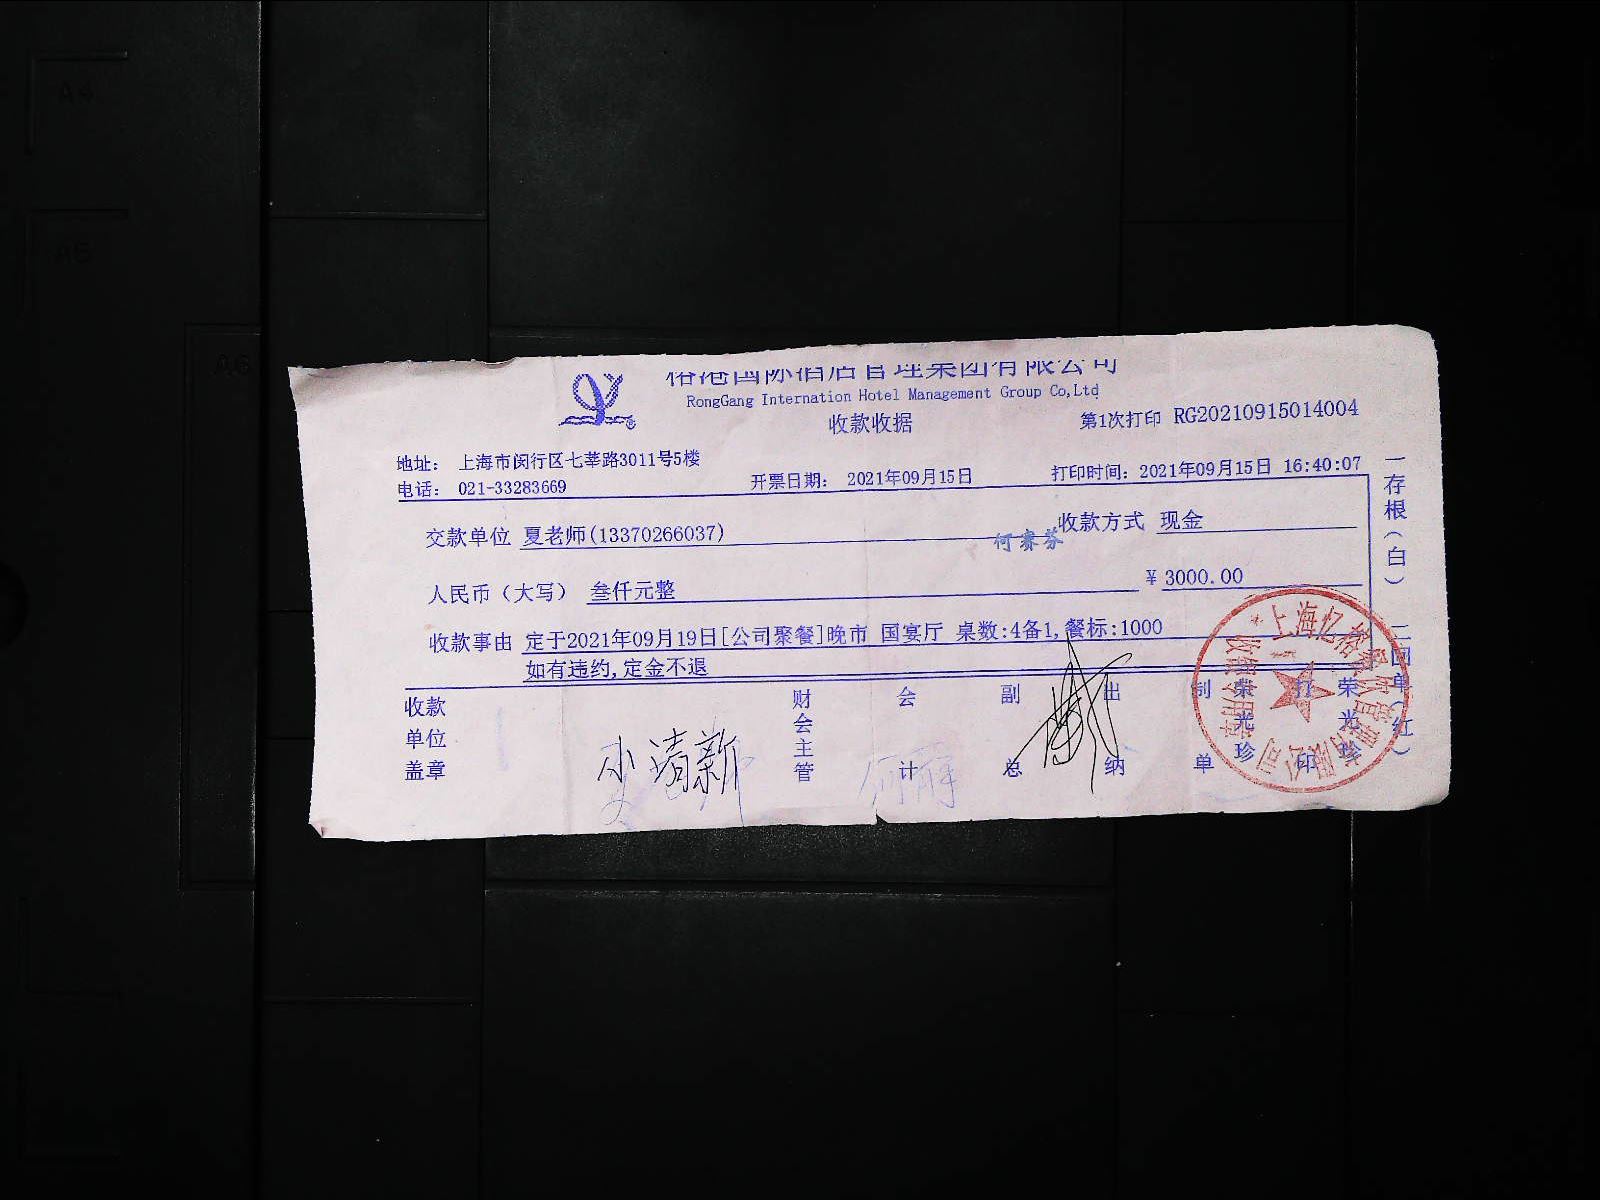 榕港国际酒店管理集团有限公司
RongGang Internation Hotel Management Group Co,Ltd
收款收据
第1次打印 RG20210915014004
地址: 上海市闵行区七莘路3011号5楼
电话: 021-33283669
开票日期: 2021年09月15日
打印时间: 2021年09月15日 16:40:07
交款单位 夏老师(13370266037)
收款方式 现金
何赛芬
人民币(大写) 叁仟元整
¥ 3000.00
收款事由 定于2021年09月19日[公司聚餐]晚市 国宴厅 桌数:4备1,餐标:1000
如有违约,定金不退
收款单位盖章
财会主管
会计
副总
出纳
制单 荣光珍
打印 荣光珍
一存根(白) 二回单(红)
清新
A4
A5
A6